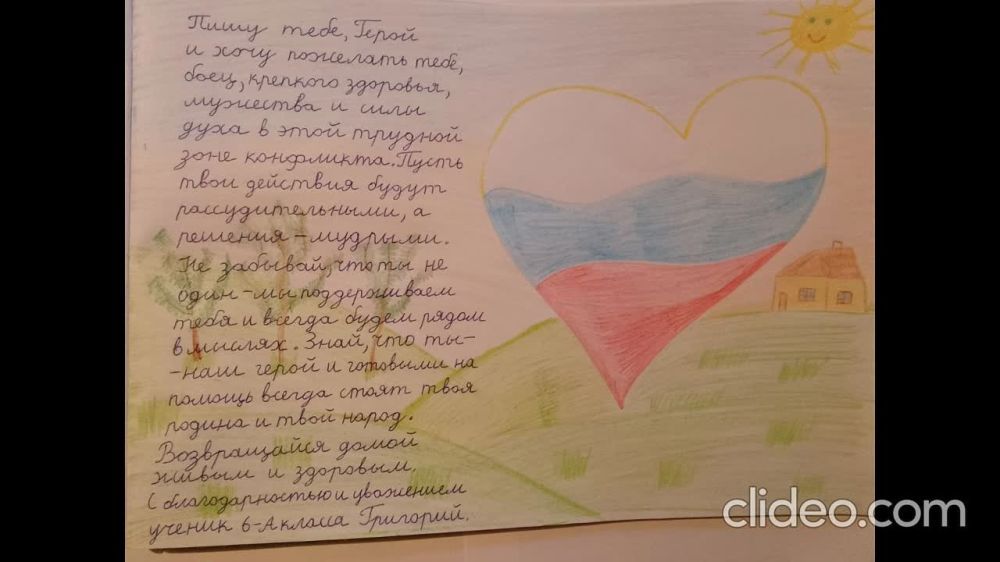 Пишу тебе, Герой
и хочу пожелать тебе,
боец, крепкого здоровья,
мужества и силы
духа в этой трудной
зоне конфликта. Пусть
твои действия будут
рассудительными, а
решения – мудрыми.
Не забывай, что ты не
один – мы поддерживаем
тебя и всегда будем рядом
в мыслях. Знай, что ты –
– наш герой и готовыми на
помощь всегда стоят твоя
родина и твой народ.
Возвращайся домой
живым и здоровым.
С благодарностью и уважением
ученик 6-А класса Григорий.
clideo.com